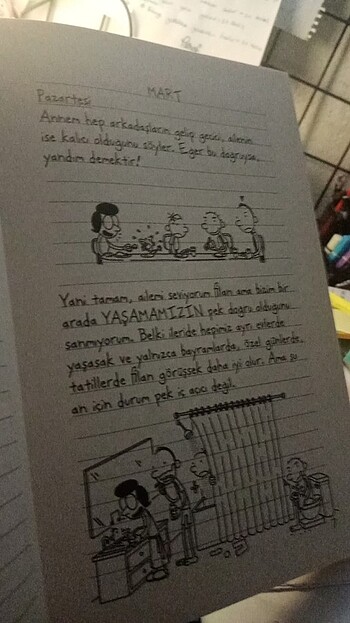 MART
Pazartesi
Annem hep arkadaşların gelip geçici, ailenin
ise kalıcı olduğunu söyler. Eğer bu doğruysa,
yandım demektir!
Yani tamam, ailemi seviyorum filan ama bizim bir
arada YAŞAMAMIZIN pek doğru olduğunu
sanmıyorum. Belki ileride hepimiz ayrı evlerde
yaşasak ve yalnızca bayramlarda, özel günlerde,
tatillerde filan görüşsek daha iyi olur. Ama şu
an için durum pek iç açıcı değil.